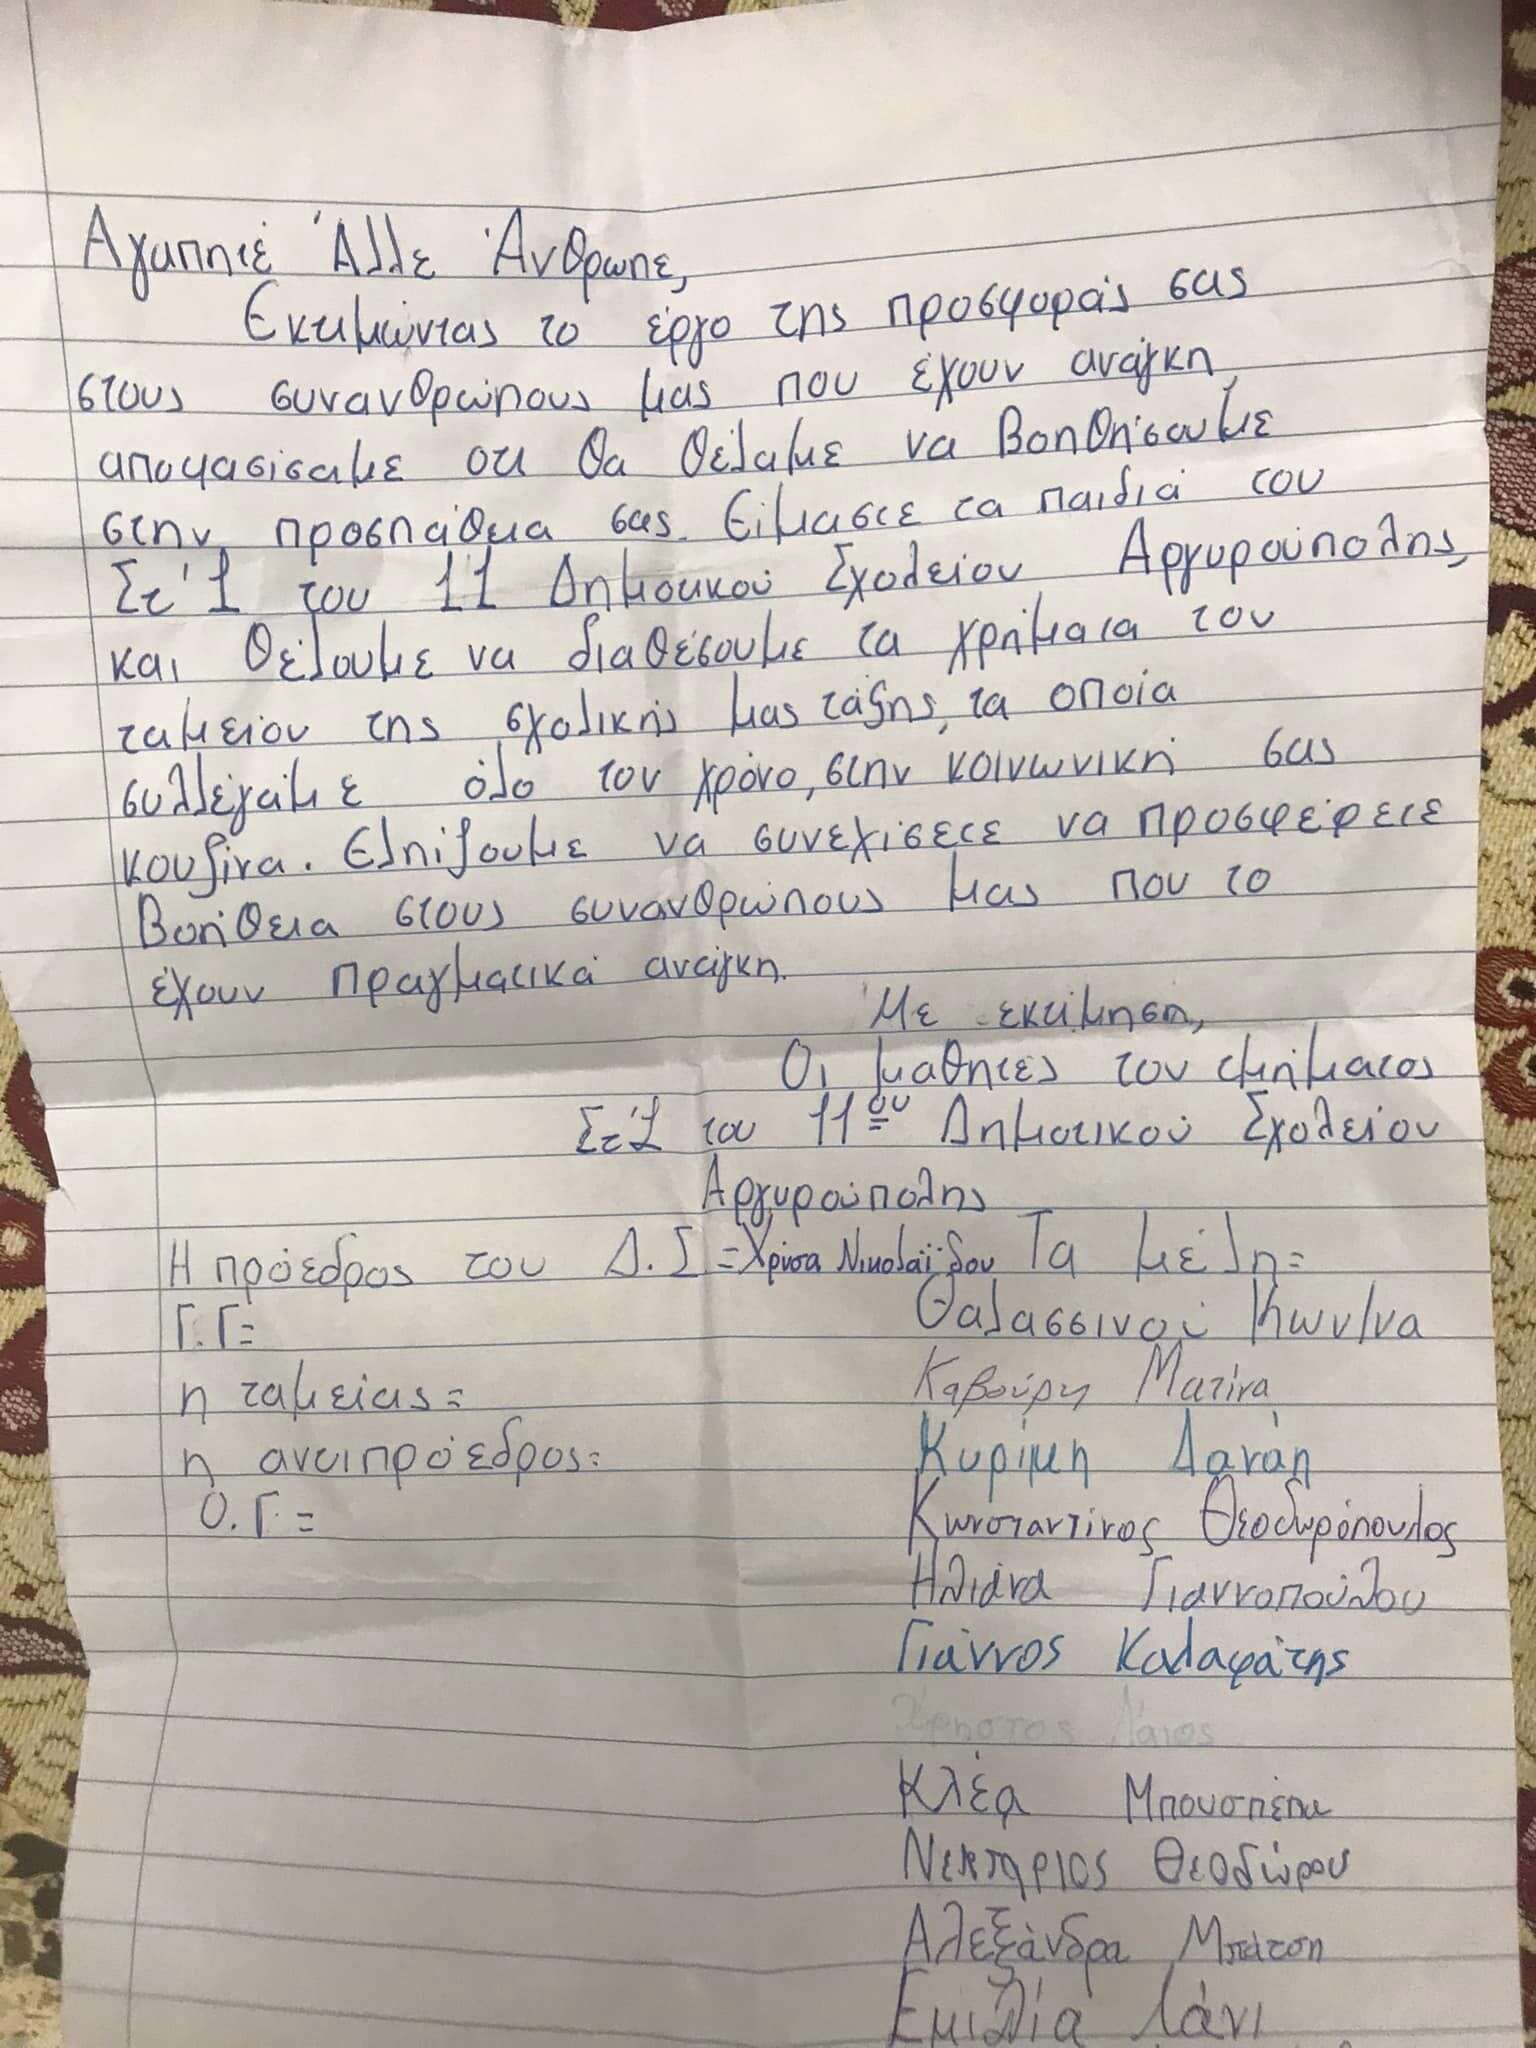 Αγαπητέ Άλλε Άνθρωπε,
Εκτιμώντας το έργο της προσφοράς σας
στους συνανθρώπους μας που έχουν ανάγκη,
αποφασίσαμε οτι θα θέλαμε να βοηθήσουμε
στην προσπάθεια σας. Είμαστε τα παιδιά του
Στ'1 του 11 Δημοτικού Σχολείου Αργυρούπολης,
και θέλουμε να διαθέσουμε τα χρήματα του
ταμείου της σχολικής μας τάξης, τα οποία
συλλέγαμε όλο τον χρόνο, στην κοινωνική σας
κουζίνα. Ελπίζουμε να συνεχίσετε να προσφέρετε
βοήθεια στους συνανθρώπους μας που το
έχουν πραγματικά ανάγκη.
Με εκτίμηση,
Οι μαθητές του τμήματος
Στ'1 του 11ου Δημοτικού Σχολείου
Αργυρούπολης
Η πρόεδρος του Δ.Σ = Χρύσα Νικολαΐδου Τα μέλη=
Γ.Γ= Θαλασσινού Κων/να
η ταμείας= Καβούρη Ματίνα
η αντιπρόεδρος= Κυρίμη Δανάη
Ο.Γ.= Κωνσταντίνος Θεοδωρόπουλος
Ηλιάνα Γιαννοπούλου
Γιάννος Καλαφάτης
Χρήστος
Κλέα
Νεκτάριος Θεοδώρου
Αλεξάνδρα Μπάτση
Εμιλία Λάνι